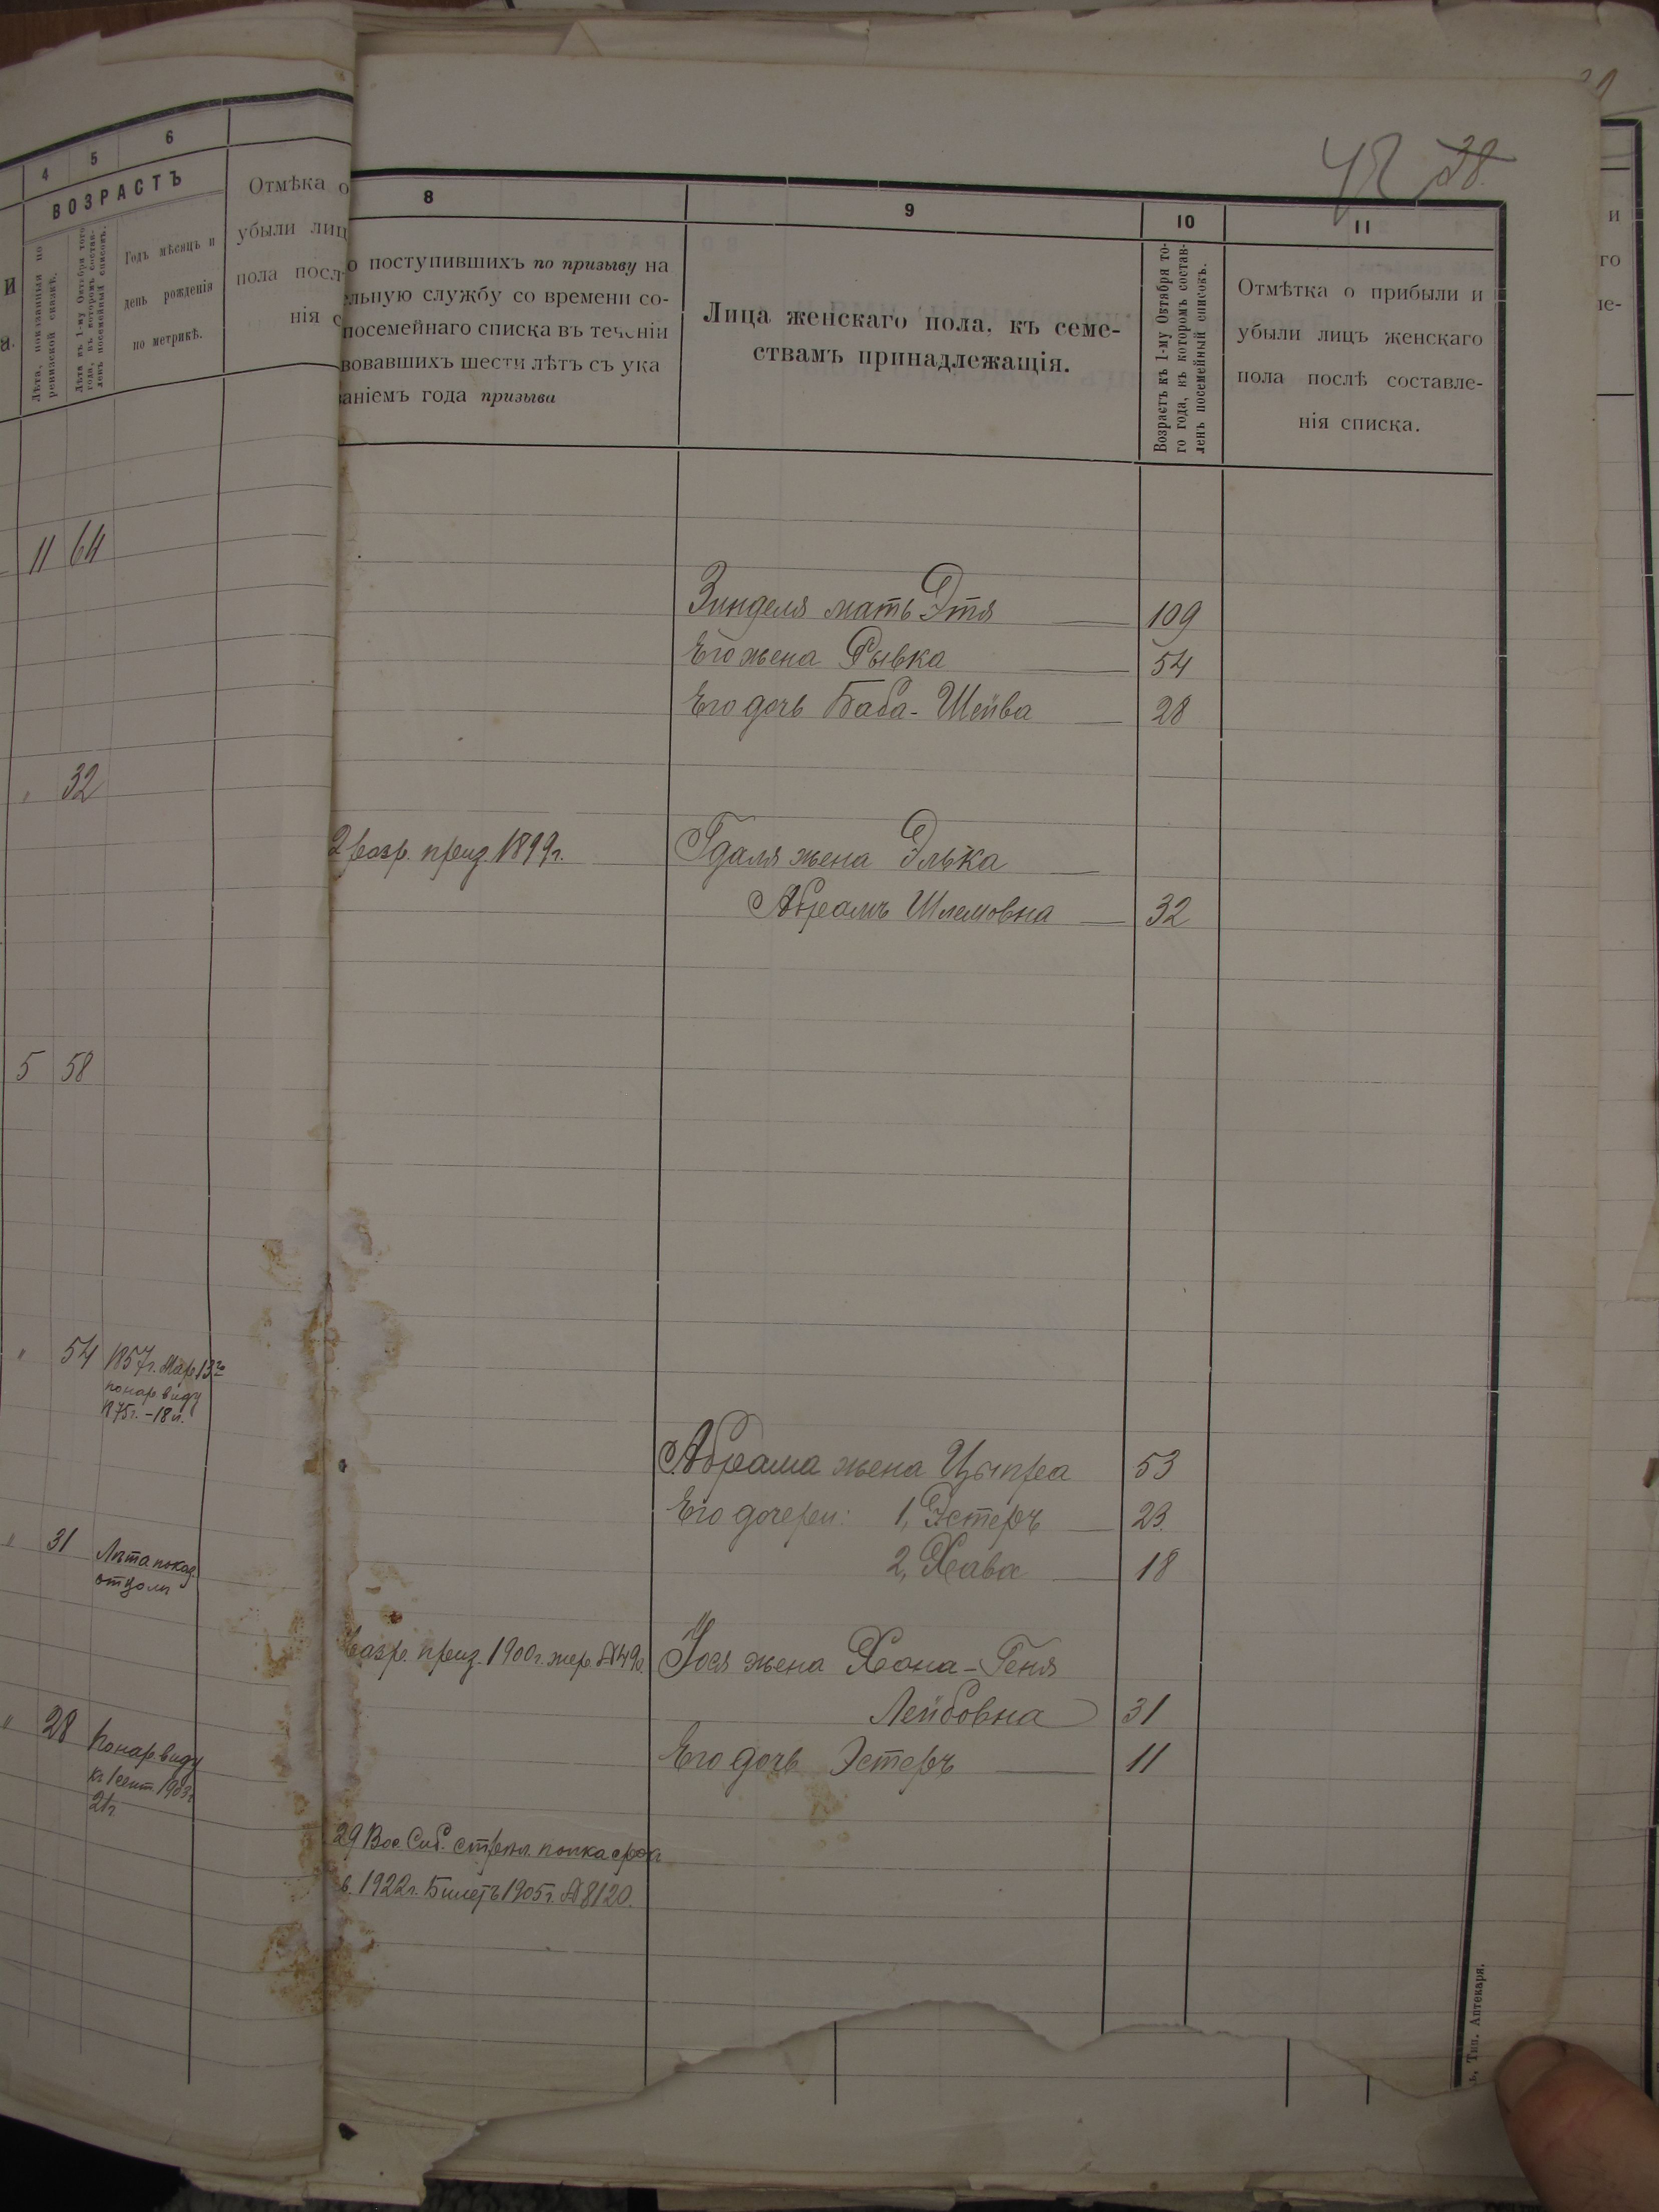 4 5 6
ВОЗРАСТЪ
Лѣта, показанныя по
ревизской сказкѣ.
Лѣта къ 1-му Октября того
года, въ которомъ состав-
ленъ посемейный списокъ.
Годъ мѣсяцъ и
день рожденія
по метрикѣ.
Отмѣка о
убыли лиц
пола посл
нія с
11 64
32
5 58
54 1857г. Мар. 13го
по нар. виду
1875г. – 18 л.
31 Лѣта показ.
отцом
28 По нар. виду
къ 1 сент. 1903г
21г
42 28.
8 9 10 11
о поступившихъ по призыву на
ельную службу со времени со-
посемейнаго списка въ теченіи
вовавшихъ шести лѣтъ съ ука
аніемъ года призыва
Лица женскаго пола, къ семе-
ствамъ принадлежащія.
Возрастъ къ 1-му Октября то-
го года, въ которомъ состав-
ленъ посемейный списокъ.
Отмѣтка о прибыли и
убыли лицъ женскаго
пола послѣ составле-
нія списка.
Зинделя мать Этя 109
Его жена Рывка 54
Его дочь Баба-Шейва 28
2 разр. приз. 1899г. Гдаля жена Элька
Абрамъ Шлемовна 32
Абрама жена Цыпра 53
Его дочери: 1, Эстеръ 23.
2, Хава 18
разр. приз. 1900г. жер. №490. Іося жена Хона-Геня
Лейбовна 31
Его дочь Эстеръ 11
29 Вос. Сиб. стрѣл. полка срок
в. 1922г. Билетъ 1905г. №8120.
Тип. Аптекаря.
и
го